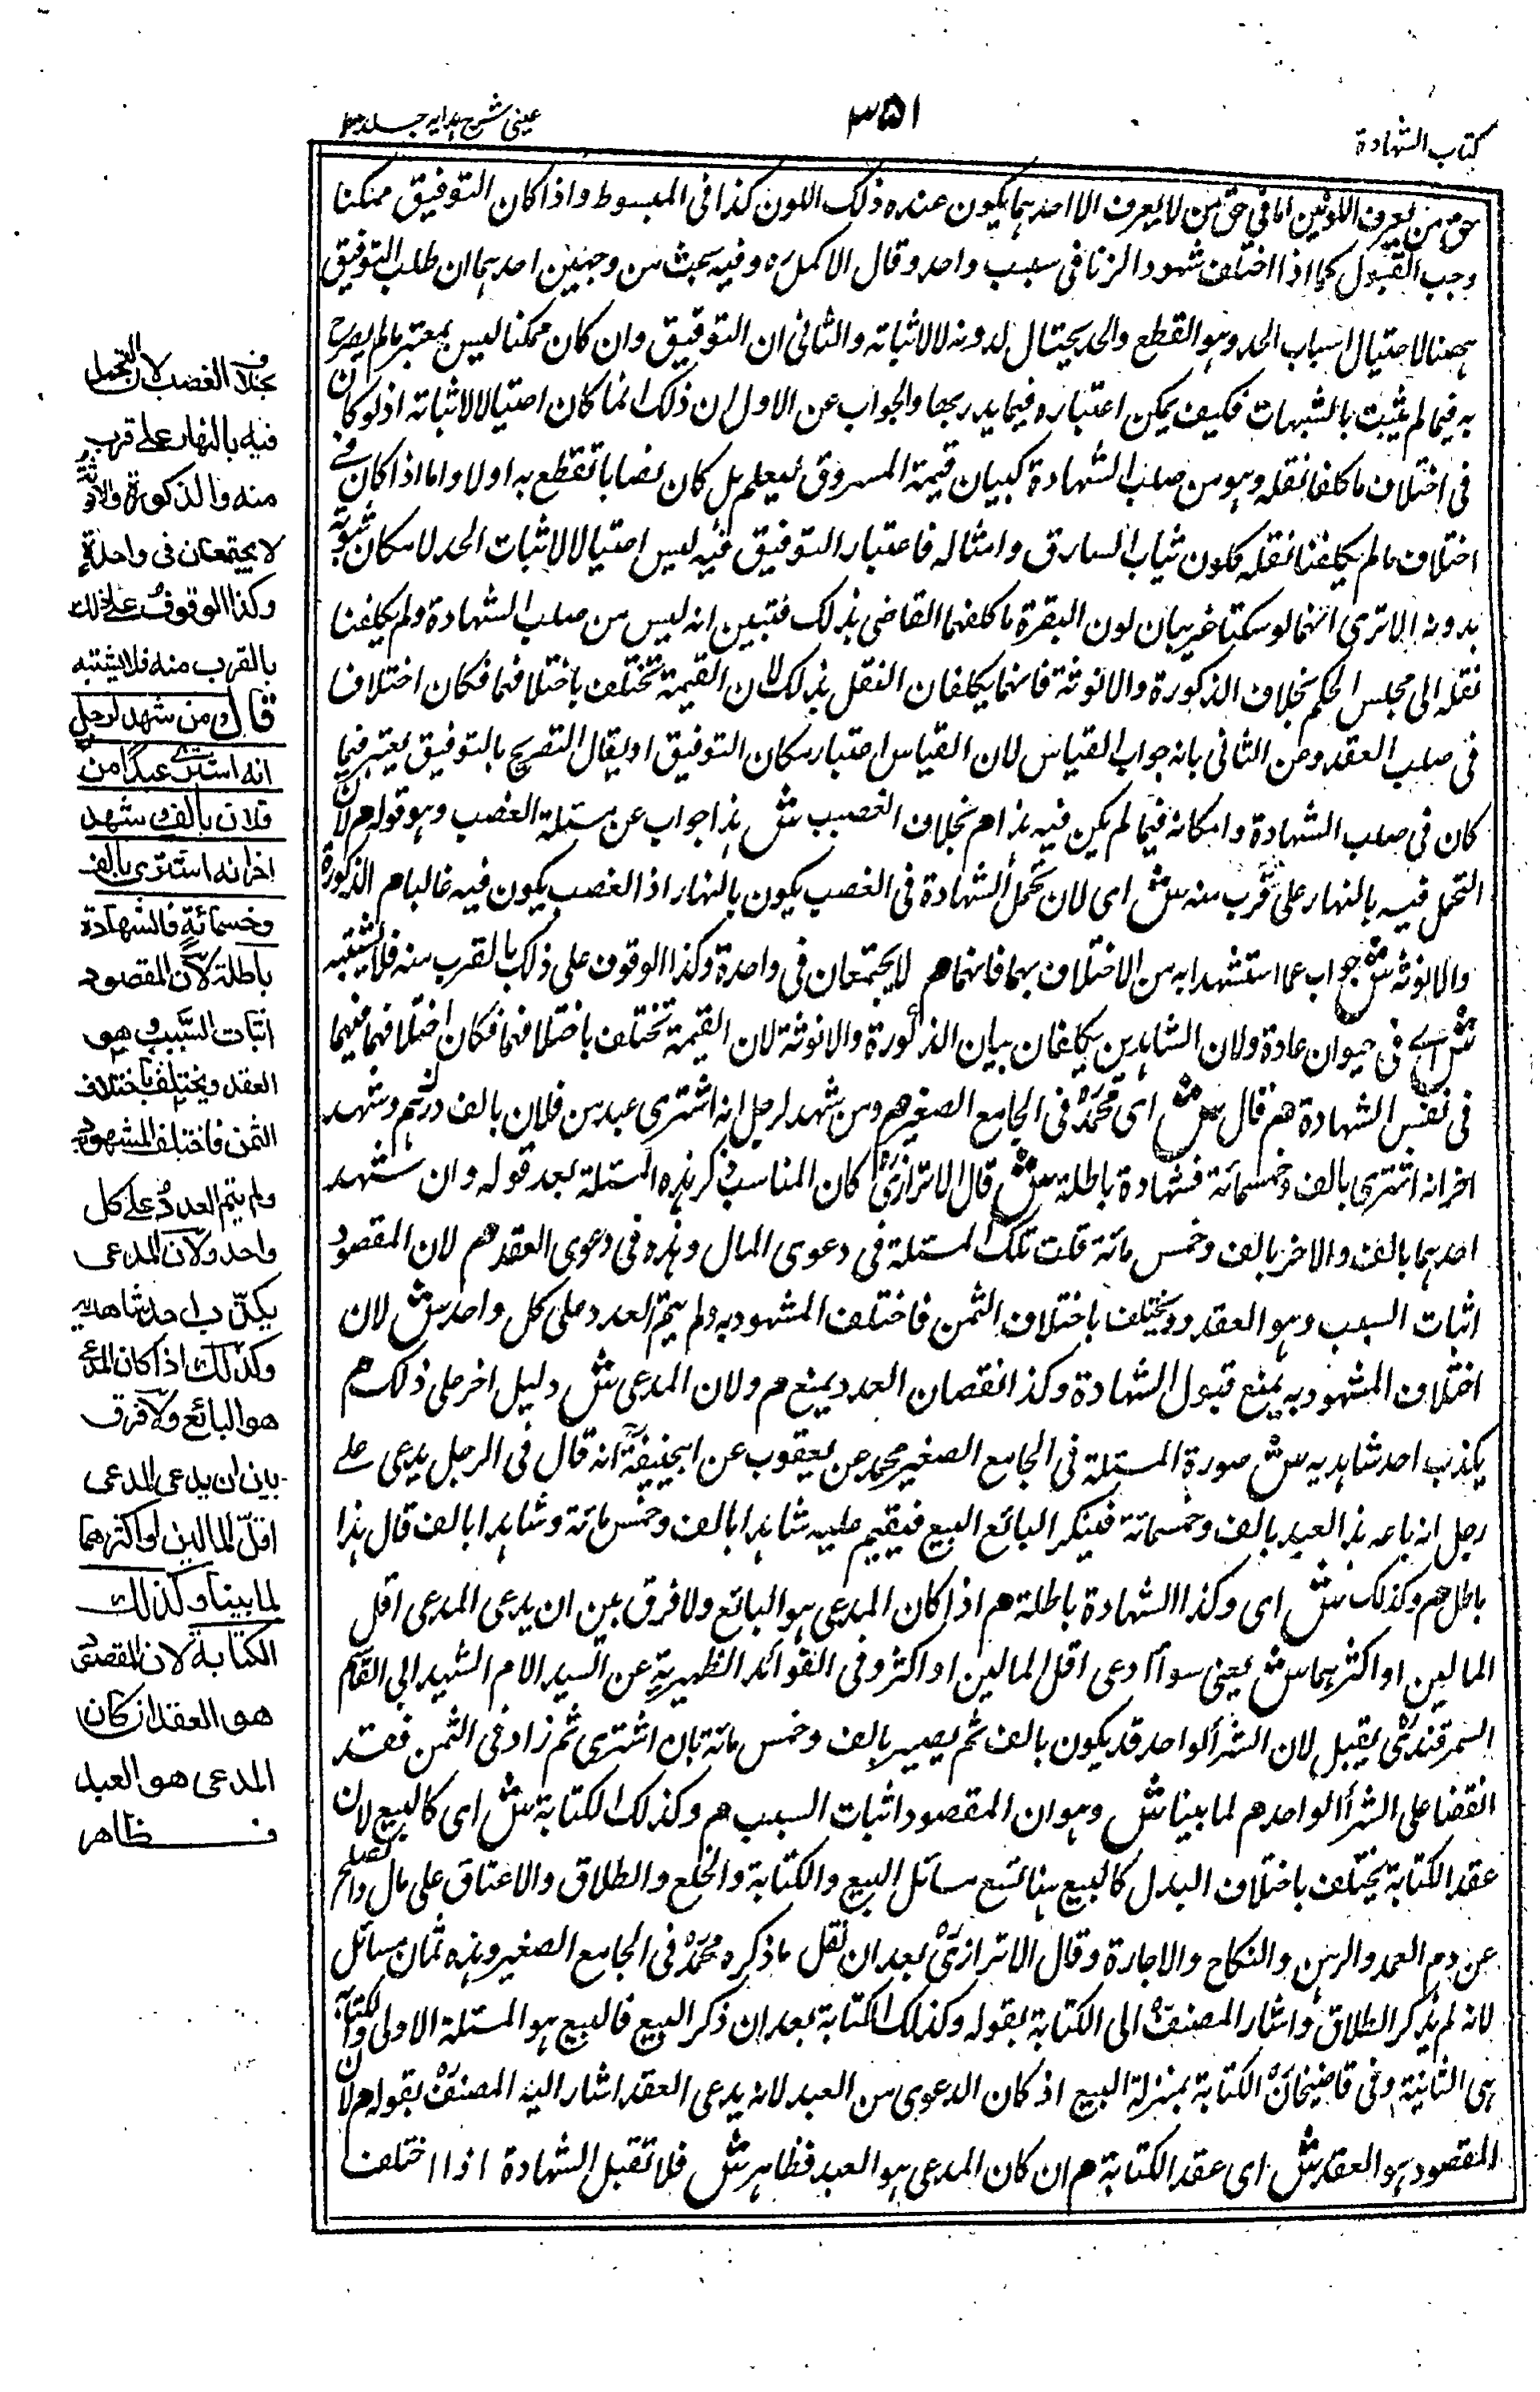 كتاب الشهادة
٣٥١
عینی شرح ہدایہ جلد ٣
حق من يعرف اللونين اما في حق من لا يعرف الا احدهما يكون عنده ذلك اللون كذا في المبسوط واذا كان التوفيق ممكنا
وجب القبول كما اذا اختلف شهود الزنا في سبب واحد وقال الاكمل ره وفيه بحث من وجهين احدهما ان طلب التوفيق
ههنا لاحتيال اسباب الحد وهو القطع والحد يحتال لدرئه لا لاثباته والثاني ان التوفيق وان كان ممكنا ليس بمعتبر مالم يصرح
به فيما لم يثبت بالشبهات فكيف يمكن اعتباره فيما يدرء بها والجواب عن الاول ان ذلك انما كان احتيالا لاثباته اذ لو كان
في اختلاف ما كلفا نقله وهو من صلب الشهادة كبيان قيمة المسروق ليعلم هل كان نصابا تقطع به اولا واما اذا كان في
اختلاف مالم يكلفنا نقله كلون ثياب السارق وامثاله فاعتبار التوفيق فيه ليس احتيالا لاثبات الحد لامكان ثبوته
بدونه الا ترى انهما لو سكتا عن بيان لون البقرة ما كلفهما القاضي بذلك فتبين انه ليس من صلب الشهادة ولم يكلفنا
نقله الى مجلس الحكم بخلاف الذكورة والانوثة فانهما يكلفان النقل بذلك لان القيمة تختلف باختلافهما فكان اختلاف
في صلب العقد وعن الثاني بانه جواب القياس لان القياس اعتبار امكان التوفيق او يقال التصريح بالتوفيق يعتبر فيما
كان في صلب الشهادة وامكانه فيما لم يكن فيه هذا م بخلاف الغصب ش هذا جواب عن مسئلة الغصب وهو قوله م لان
التحمل فيه بالنهار على قرب منه ش اى لان تحمل الشهادة في الغصب يكون بالنهار اذ الغصب يكون فيه غالبا م الذكورة
والانوثة ش جواب عما استشهدا به من الاختلاف بهما فانهما م لا يجتمعان في واحدة وكذا الوقوف على ذلك بالقرب منه فلا يشتبه
ش اى في حيوان عادة ولان الشاهدين يكلفان بيان الذكورة والانوثة لان القيمة تختلف باختلافهما فكان اختلافهما فيهما
في نفس الشهادة م قال ش اى محمد في الجامع الصغير م ومن شهد لرجل انه اشترى عبد من فلان بالف درهم وشهد
اخر انه اشترى بالف وخمسمائة فشهادة باطلة ش قال الاترازى كان المناسب ذكر هذه المسئلة بعد قوله وان شهد
احدهما بالف والاخر بالف وخمس مائة قلت تلك المسئلة في دعوى المال وهذه في دعوى العقد م لان المقصود
اثبات السبب وهو العقد ويختلف باختلاف الثمن فاختلف المشهود به ولم يتم العدد على كل واحد ش لان
اختلاف المشهود به يمنع قبول الشهادة وكذا نقصان العدد يمنع م ولان المدعى ش دليل اخر على ذلك م
يكذب احد شاهديه ش صورة المسئلة في الجامع الصغير محمد عن يعقوب عن ابيحنيفة انه قال في الرجل يدعى على
رجل انه باعه هذا العبد بالف وخمسمائة فينكر البائع البيع فيقيم عليه شاهدا بالف وخمس مائة وشاهدا بالف قال هذا
باطل م وكذلك ش اى وكذا الشهادة باطلة م اذا كان المدعى هو البائع ولا فرق بين ان يدعى المدعى اقل
المالين او اكثرهما ش يعنى سواأ ادعى اقل المالين او اكثر وفي الفوائد الظهيرية عن السيد الامام الشهيد ابي القاسم
السمرقندى يقبل لان الشرأ الواحد قد يكون بالف ثم يصير بالف وخمس مائة بان اشترى ثم زاد في الثمن فقد
اتفقا على الشرأ الواحد م لما بينا ش وهو ان المقصود اثبات السبب م وكذلك الكتابة ش اى كالبيع لان
عقد الكتابة يختلف باختلاف البدل كالبيع هنا تسع مسائل البيع والكتابة والخلع والطلاق والاعتاق على مال والصلح
عن دم العمد والرهن والنكاح والاجارة وقال الاترازى بعد ان نقل ما ذكره محمد في الجامع الصغير وهذه ثمان مسائل
لانه لم يذكر الطلاق واشار المصنف الى الكتابة بقوله وكذلك الكتابة بعد ان ذكر البيع فالبيع هو المسئلة الاولى والكتابة
هى الثانية وفي قاضيخان الكتابة بمنزلة البيع اذ كان الدعوى من العبد لانه يدعى العقد اشار اليه المصنف بقوله م لان
المقصود هو العقد ش اى عقد الكتابة م ان كان المدعى هو العبد فظاهر ش فلا تقبل الشهادة اذا اختلف
بخلاف الغصب لان التحمل
فيه بالنهار على قرب
منه والذكورة والانوثة
لا يجتمعان فى واحدة
وكذا الموقوف على ذلك
بالقرب منه فلا يشتبه
قال ومن شهد لرجل
انه اشترى عبدا من
فلان بالف وشهد
اخر انه اشترى بالف
وخسمائة فالشهادة
باطلة لان المقصود
اثبات السبب وهو
العقد ويختلف باختلاف
الثمن فاختلف المشهود به
ولم يتم العدد على كل
واحد ولان المدعى
يكذب احد شاهديه
وكذلك اذا كان المدعى
هو البائع ولا فرق
بين ان يدعى المدعى
اقل المالين او اكثرهما
لما بينا وكذلك
الكتابة لان المقصود
هو العقد ان كان
المدعى هو العبد
فظاهر